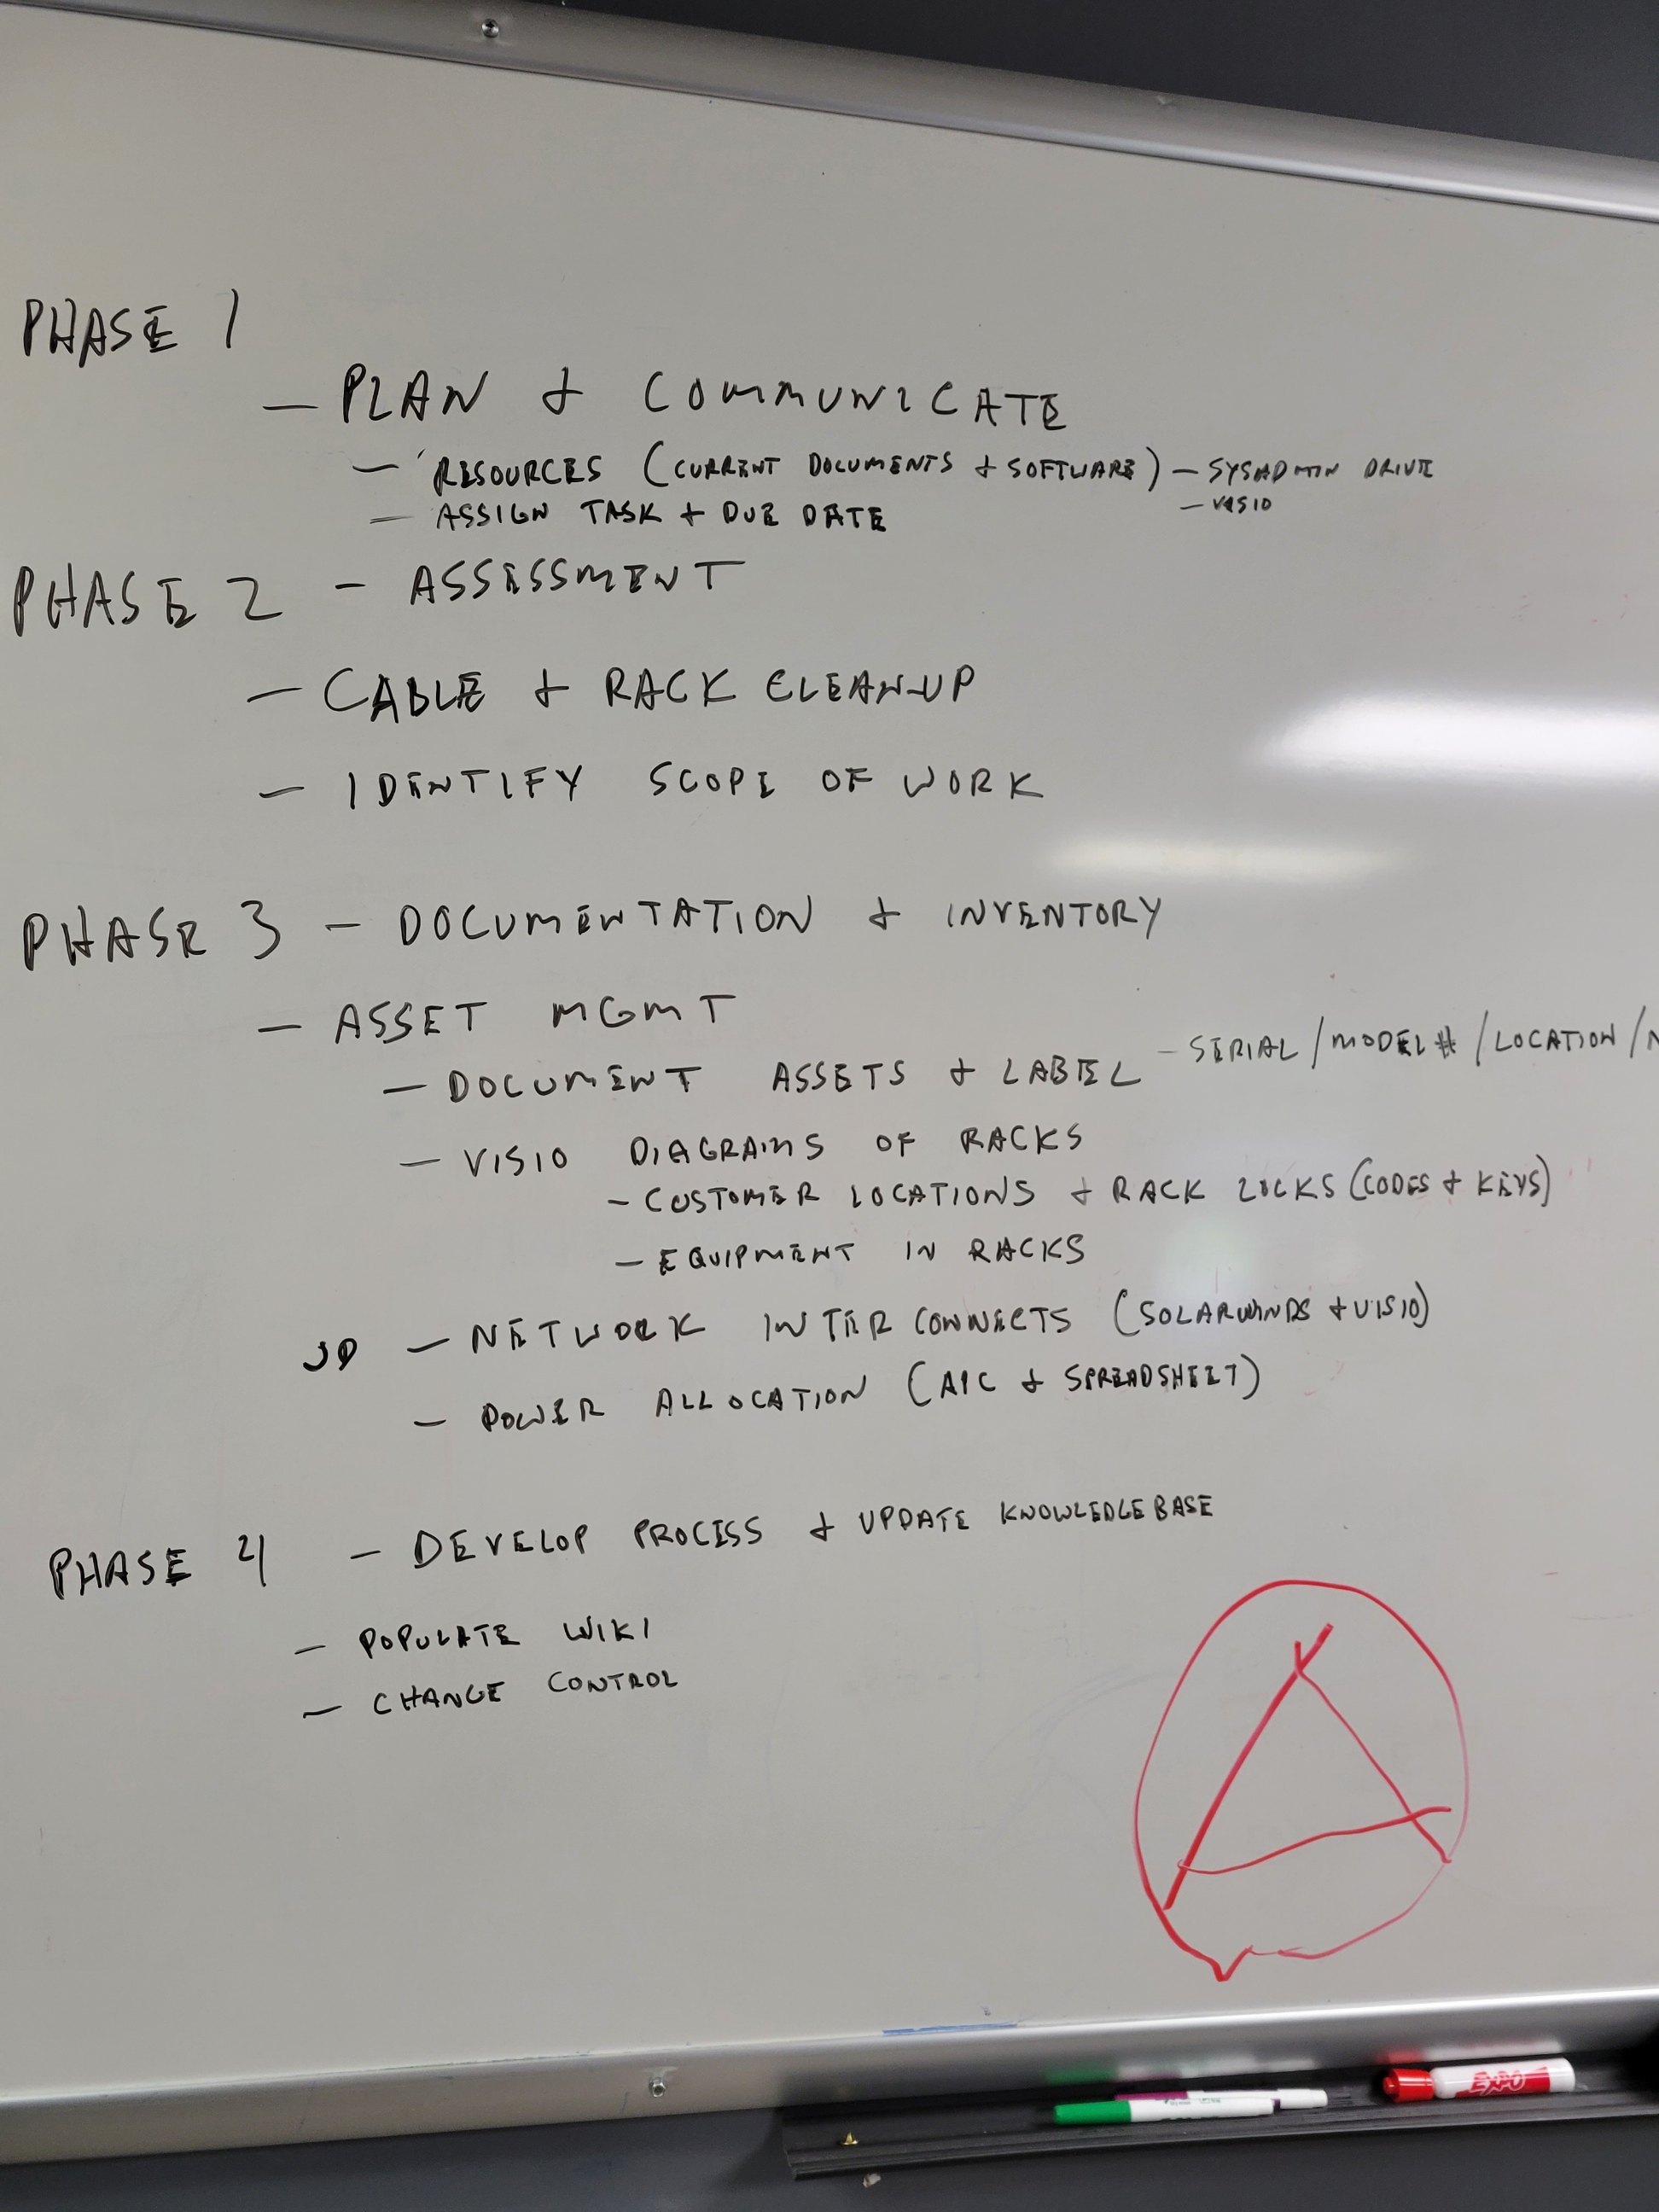 PHASE 1
- PLAN & COMMUNICATE
- RESOURCES (CURRENT DOCUMENTS & SOFTWARE) - SYSADMIN DRIVE
- VISIO
- ASSIGN TASK & DUE DATE
PHASE 2 - ASSESSMENT
- CABLE & RACK CLEAN-UP
- IDENTIFY SCOPE OF WORK
PHASE 3 - DOCUMENTATION & INVENTORY
- ASSET MGMT
- DOCUMENT ASSETS & LABEL - SERIAL/MODEL #/LOCATION/
- VISIO DIAGRAMS OF RACKS
- CUSTOMER LOCATIONS & RACK LOCKS (CODES & KEYS)
- EQUIPMENT IN RACKS
JD - NETWORK INTERCONNECTS (SOLARWINDS & VISIO)
- POWER ALLOCATION (APC & SPREADSHEET)
PHASE 4 - DEVELOP PROCESS & UPDATE KNOWLEDGEBASE
- POPULATE WIKI
- CHANGE CONTROL
EXPO